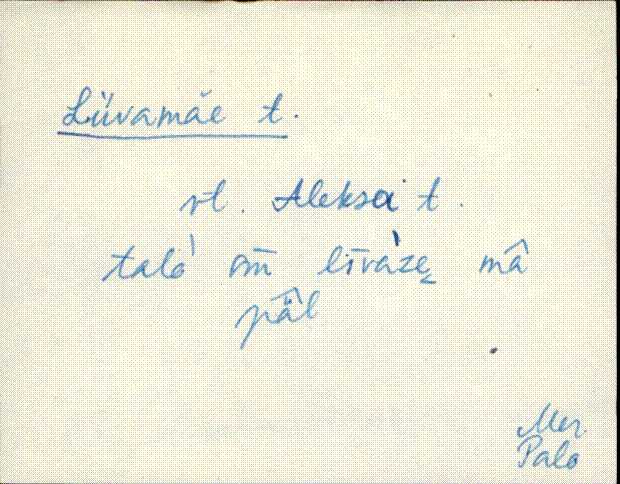 Liivamäe t.
vt. Aleksa t.
talo' om līvàzẹ mâ
pä̂l
Mer.
Palo